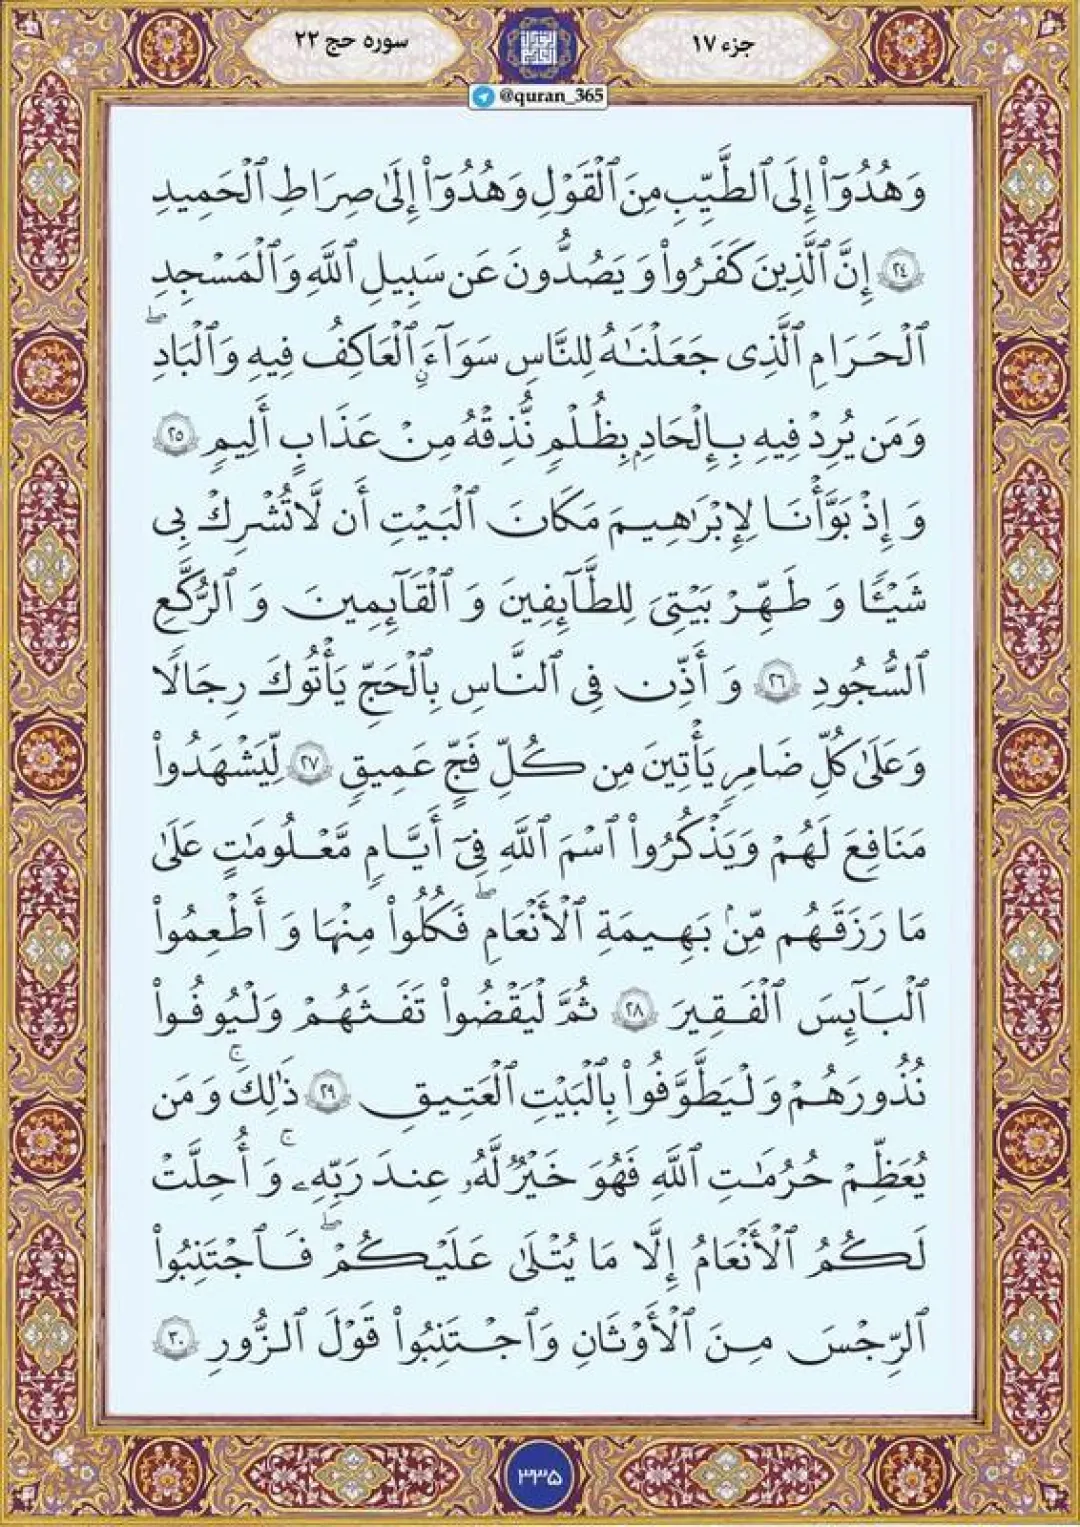 جزء ١٧
سوره حج ٢٢
@quran_365
وَهُدُوٓا۟ إِلَى ٱلطَّيِّبِ مِنَ ٱلْقَوْلِ وَهُدُوٓا۟ إِلَىٰ صِرَاطِ ٱلْحَمِيدِ
٢٤ إِنَّ ٱلَّذِينَ كَفَرُوا۟ وَيَصُدُّونَ عَن سَبِيلِ ٱللَّهِ وَٱلْمَسْجِدِ
ٱلْحَرَامِ ٱلَّذِى جَعَلْنَـٰهُ لِلنَّاسِ سَوَآءً ٱلْعَاكِفُ فِيهِ وَٱلْبَادِ ۖ
وَمَن يُرِدْ فِيهِ بِإِلْحَادٍۭ بِظُلْمٍ نُّذِقْهُ مِنْ عَذَابٍ أَلِيمٍ ٢٥
وَإِذْ بَوَّأْنَا لِإِبْرَٰهِيمَ مَكَانَ ٱلْبَيْتِ أَن لَّا تُشْرِكْ بِى
شَيْـًٔا وَطَهِّرْ بَيْتِىَ لِلطَّآئِفِينَ وَٱلْقَآئِمِينَ وَٱلرُّكَّعِ
ٱلسُّجُودِ ٢٦ وَأَذِّن فِى ٱلنَّاسِ بِٱلْحَجِّ يَأْتُوكَ رِجَالًا
وَعَلَىٰ كُلِّ ضَامِرٍ يَأْتِينَ مِن كُلِّ فَجٍّ عَمِيقٍ ٢٧ لِّيَشْهَدُوا۟
مَنَافِعَ لَهُمْ وَيَذْكُرُوا۟ ٱسْمَ ٱللَّهِ فِىٓ أَيَّامٍ مَّعْلُومَـٰتٍ عَلَىٰ
مَا رَزَقَهُم مِّنۢ بَهِيمَةِ ٱلْأَنْعَـٰمِ ۖ فَكُلُوا۟ مِنْهَا وَأَطْعِمُوا۟
ٱلْبَآئِسَ ٱلْفَقِيرَ ٢٨ ثُمَّ لْيَقْضُوا۟ تَفَثَهُمْ وَلْيُوفُوا۟
نُذُورَهُمْ وَلْيَطَّوَّفُوا۟ بِٱلْبَيْتِ ٱلْعَتِيقِ ٢٩ ذَٰلِكَ ۚ وَمَن
يُعَظِّمْ حُرُمَـٰتِ ٱللَّهِ فَهُوَ خَيْرٌ لَّهُۥ عِندَ رَبِّهِۦ ۚ وَأُحِلَّتْ
لَكُمُ ٱلْأَنْعَـٰمُ إِلَّا مَا يُتْلَىٰ عَلَيْكُمْ ۖ فَٱجْتَنِبُوا۟
ٱلرِّجْسَ مِنَ ٱلْأَوْثَـٰنِ وَٱجْتَنِبُوا۟ قَوْلَ ٱلزُّورِ ٣٠
٣٣٥